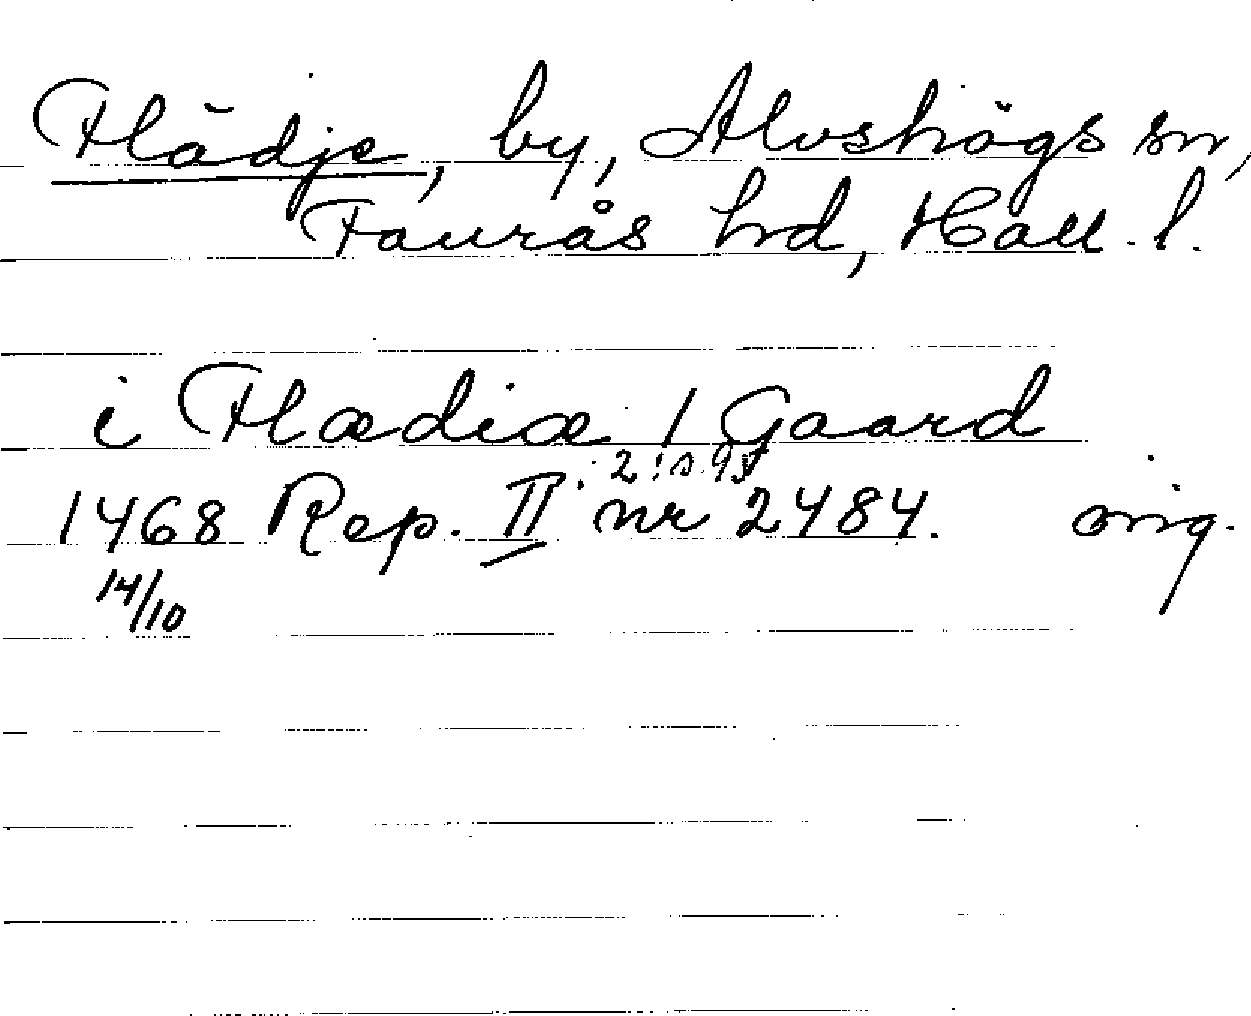 Flädje, by, Alvshögs sn,
Faurås hrd, Hall. l.
i Flædiæ 1 Gaard
2: s. 95
1468 Rep. II nr 2484. orig.
14/10